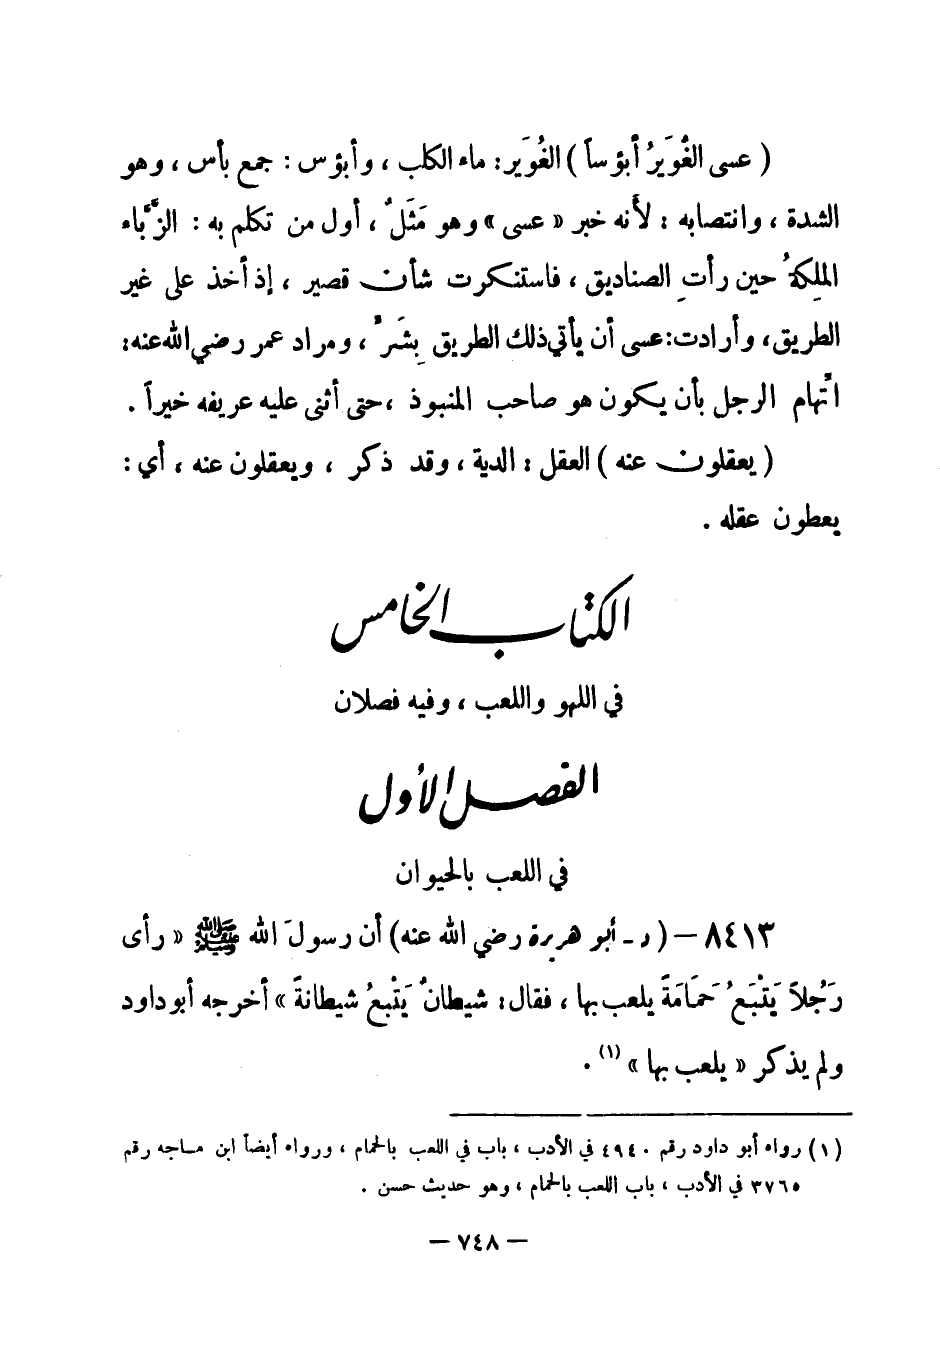 ( عسى الغُوَيرُ أبؤساً ) الغُوَير: ماء الكلب ، وأبؤس : جمع بأس ، وهو
الشدة ، وانتصابه : لأنه خبر « عسى » وهو مَثَلٌ ، أول من تكلم به : الزَّبَّاء
الملِكةُ حين رأتِ الصناديق ، فاستنكرت شأن قصير ، إذ أخذ على غير
الطريق ، وأرادت : عسى أن يأتي ذلك الطريق بِشَرٍّ ، ومراد عمر رضي الله عنه :
اتّهام الرجل بأن يكون هو صاحب المنبوذ ، حتى أثنى عليه عريفه خيراً .
( يعقلون عنه ) العقل : الدية ، وقد ذكر ، ويعقلون عنه ، أي :
يعطون عقله .
الكتاب الخامس
في اللهو واللعب ، وفيه فصلان
الفصل الأول
في اللعب بالحيوان
٨٤١٣ – ( د - أبو هريرة رضي الله عنه ) أن رسولَ الله ﷺ « رأى
رَجُلاً يَتْبَعُ حَمَامَةً يلعب بها ، فقال : شيطانٌ يَتْبعُ شيطانةً » أخرجه أبو داود
ولم يذكر « يلعب بها » (١) .
(١) رواه أبو داود رقم ٤٩٤٠ في الأدب ، باب في اللعب بالحمام ، ورواه أيضاً ابن ماجه رقم
٣٧٦٥ في الأدب ، باب اللعب بالحمام ، وهو حديث حسن .
– ٧٤٨ –